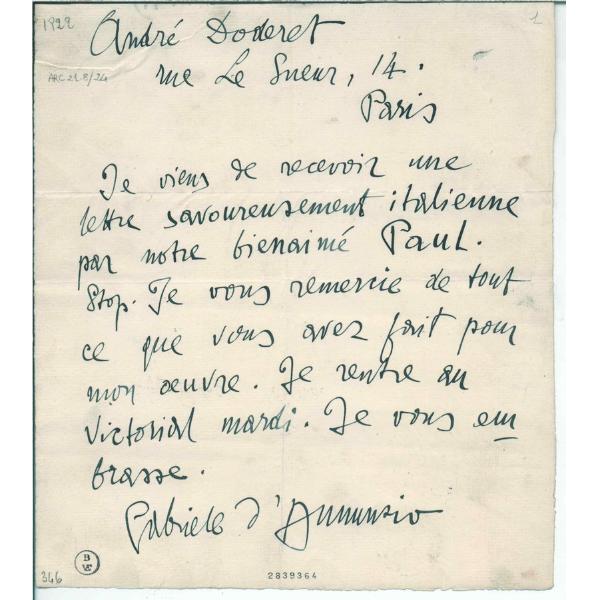 1922
1
André Doderet
ARC 21.8/24
rue Le Sueur, 14.
Paris
Je viens de recevoir une
lettre savoureusement italienne
par notre bienaimé Paul.
Stop. Je vous remercie de tout
ce que vous avez fait pour
mon œuvre. Je rentre au
Victorial mardi. Je vous em
brasse.
Gabriele d'Annunzio
346
2839364